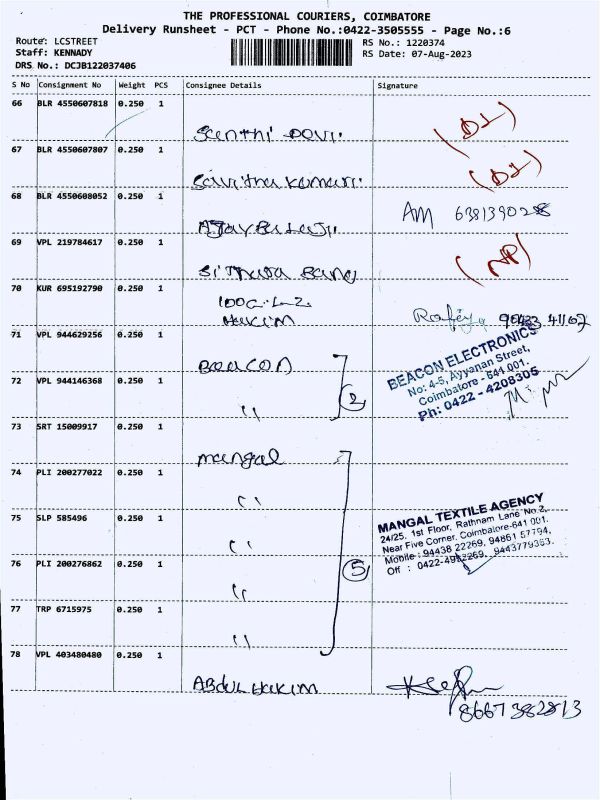 THE PROFESSIONAL COURIERS, COIMBATORE
Delivery Runsheet - PCT - Phone No.:0422-3505555 - Page No.:6
Route: LCSTREET
RS No.: 1220374
Staff: KENNADY
RS Date: 07-Aug-2023
DRS No.: DCJB122037406
S No Consignment No Weight PCS Consignee Details Signature
66 BLR 4550607818 0.250 1
Santhi Devi.
67 BLR 4550607807 0.250 1
Savitha Kumari.
68 BLR 4550608052 0.250 1
AM
Ajay Balaji
69 VPL 219784617 0.250 1
Banu
70 KUR 695192790 0.250 1
Hakim
71 VPL 944629256 0.250 1
Beacon
BEACON ELECTRONICS
No: 4-5, Ayyanan Street,
Coimbatore - 641 001.
Ph: 0422 - 4208305
72 VPL 944146368 0.250 1
" 2
73 SRT 15009917 0.250 1
Mangal
74 PLI 200277022 0.250 1
"
75 SLP 585496 0.250 1
"
MANGAL TEXTILE AGENCY
24/25, 1st Floor, Rathnam Lane No.2,
Near Five Corner, Coimbatore-641 001.
Mobile : 94438 22269, 94861 57794,
Off : 0422-4982269, 9443779363.
76 PLI 200276862 0.250 1
" 5
77 TRP 6715975 0.250 1
"
78 VPL 403480480 0.250 1
Abdul Hakim
8667382813